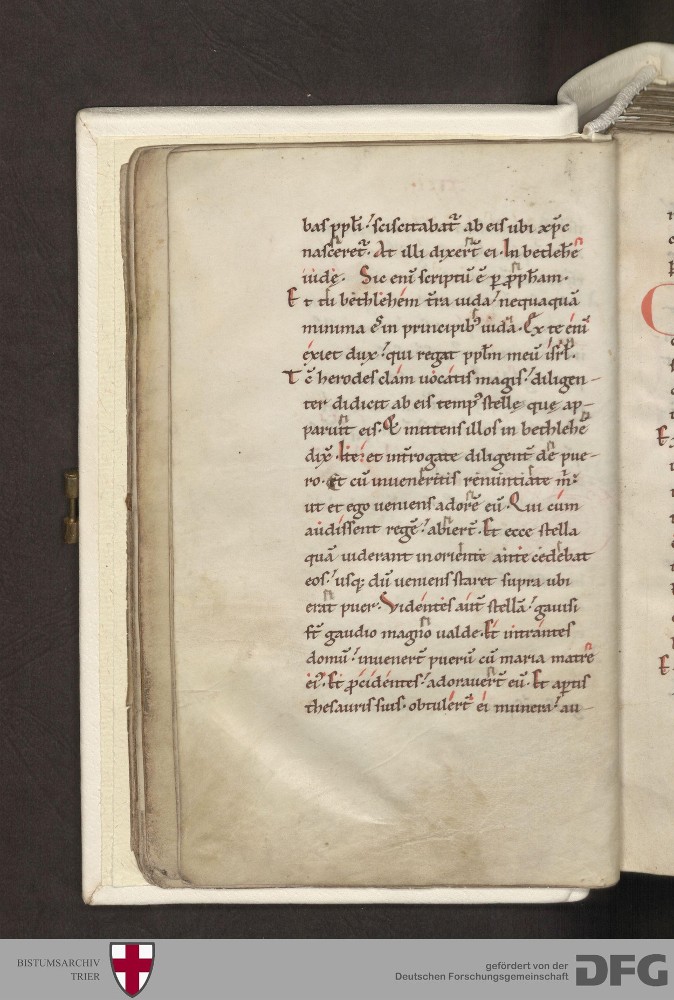 bas ppłi. sciscitabat̄ ab eis ubi xp̄c
nasceret̄. At illi dixer̄t ei. In betlehē
iudę. Sic enī scriptū ē p pp̄ham.
Et tu bethlehem t̄ra iuda. nequaquā
minima es in principib; iuda. Ex te enī
exiet dux. qui regat ppłm meū isr̄l.
Tc̄ herodes clam uocatis magis. diligen-
ter didicit ab eis temp᾽ stellę quę ap-
paruit eis. Et mittens illos in bethlehē
dix̄. Ite et int̄rogate diligent̄ de pue-
ro. Et cū inueneritis renuntiate m̄.
ut et ego ueniens adorē eū. Qui cum
audissent regē. abiert̄. Et ecce stella
quā uiderant in oriente antecedebat
eos. usq; dū ueniens staret supra ubi
erat puer. Videntes aut̄ stellā. gauisi
st̄ gaudio magno ualde. Et intrantes
domū. inuenert̄ puerū cū maria matre
ei᾽. Et pcidentes. adorauert̄ eū. Et aptis
thesauris suis. obtulert̄ ei munera. au-
BISTUMSARCHIV
TRIER
gefördert von der
Deutschen Forschungsgemeinschaft
DFG